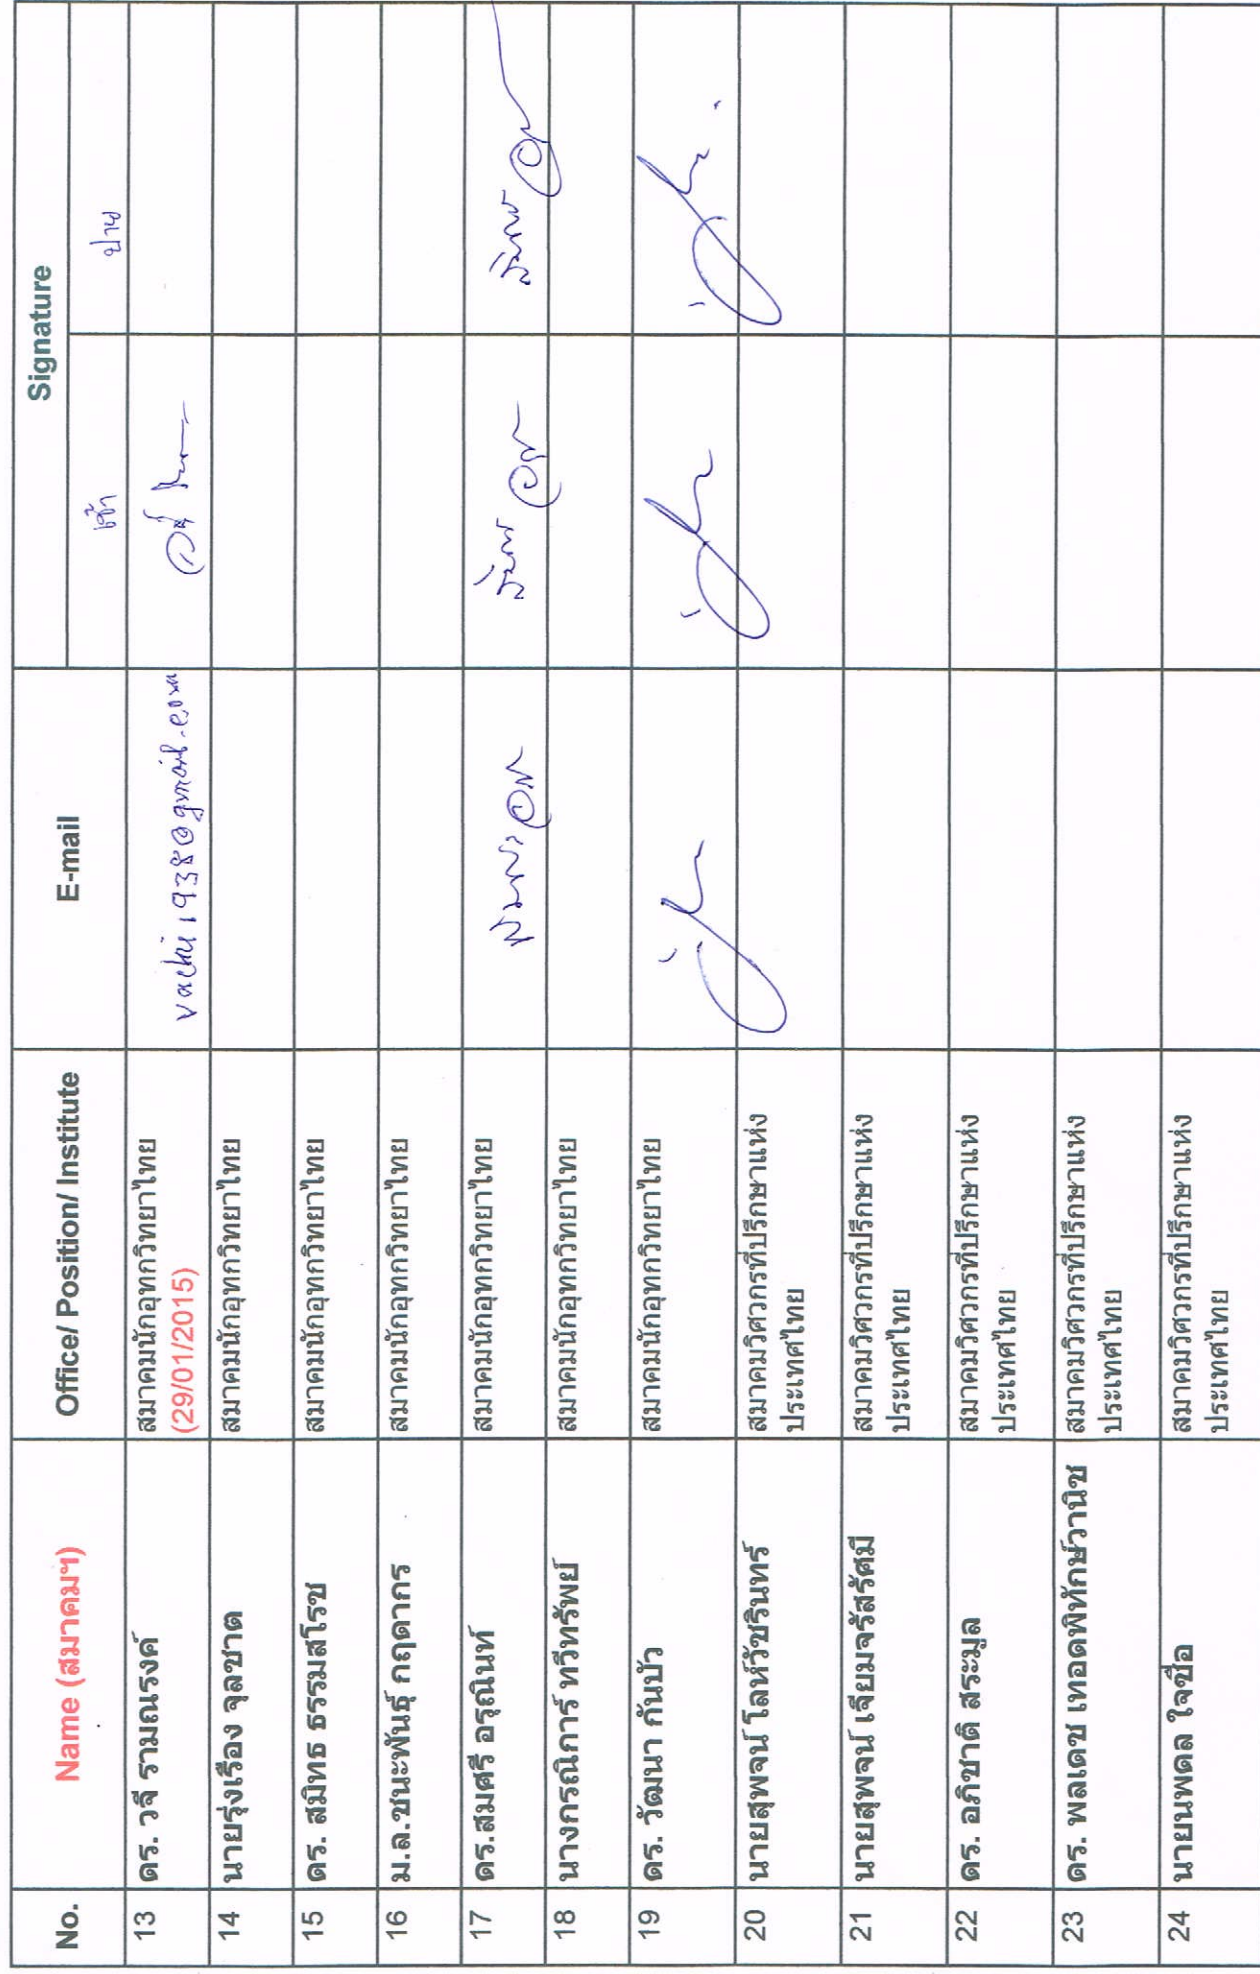 No. Name (สมาคมฯ) Office/ Position/ Institute E-mail Signature
เช้า บ่าย
13 ดร. วจี รามณรงค์ สมาคมนักอุทกวิทยาไทย vachi1938@gmail.com
(29/01/2015)
14 นายรุ่งเรือง จุลชาต สมาคมนักอุทกวิทยาไทย
15 ดร. สมิทธ ธรรมสโรช สมาคมนักอุทกวิทยาไทย
16 ม.ล.ชนะพันธุ์ กฤดากร สมาคมนักอุทกวิทยาไทย
17 ดร.สมศรี อรุณินท์ สมาคมนักอุทกวิทยาไทย
18 นางกรณิการ์ ทวีทรัพย์ สมาคมนักอุทกวิทยาไทย
19 ดร. วัฒนา กันบัว สมาคมนักอุทกวิทยาไทย
20 นายสุพจน์ โลห์วัชรินทร์ สมาคมวิศวกรที่ปรึกษาแห่ง
ประเทศไทย
21 นายสุพจน์ เจียมจรัสรัศมี สมาคมวิศวกรที่ปรึกษาแห่ง
ประเทศไทย
22 ดร. อภิชาติ สระมูล สมาคมวิศวกรที่ปรึกษาแห่ง
ประเทศไทย
23 ดร. พลเดช เทอดพิทักษ์วานิช สมาคมวิศวกรที่ปรึกษาแห่ง
ประเทศไทย
24 นายนพดล ใจซื่อ สมาคมวิศวกรที่ปรึกษาแห่ง
ประเทศไทย